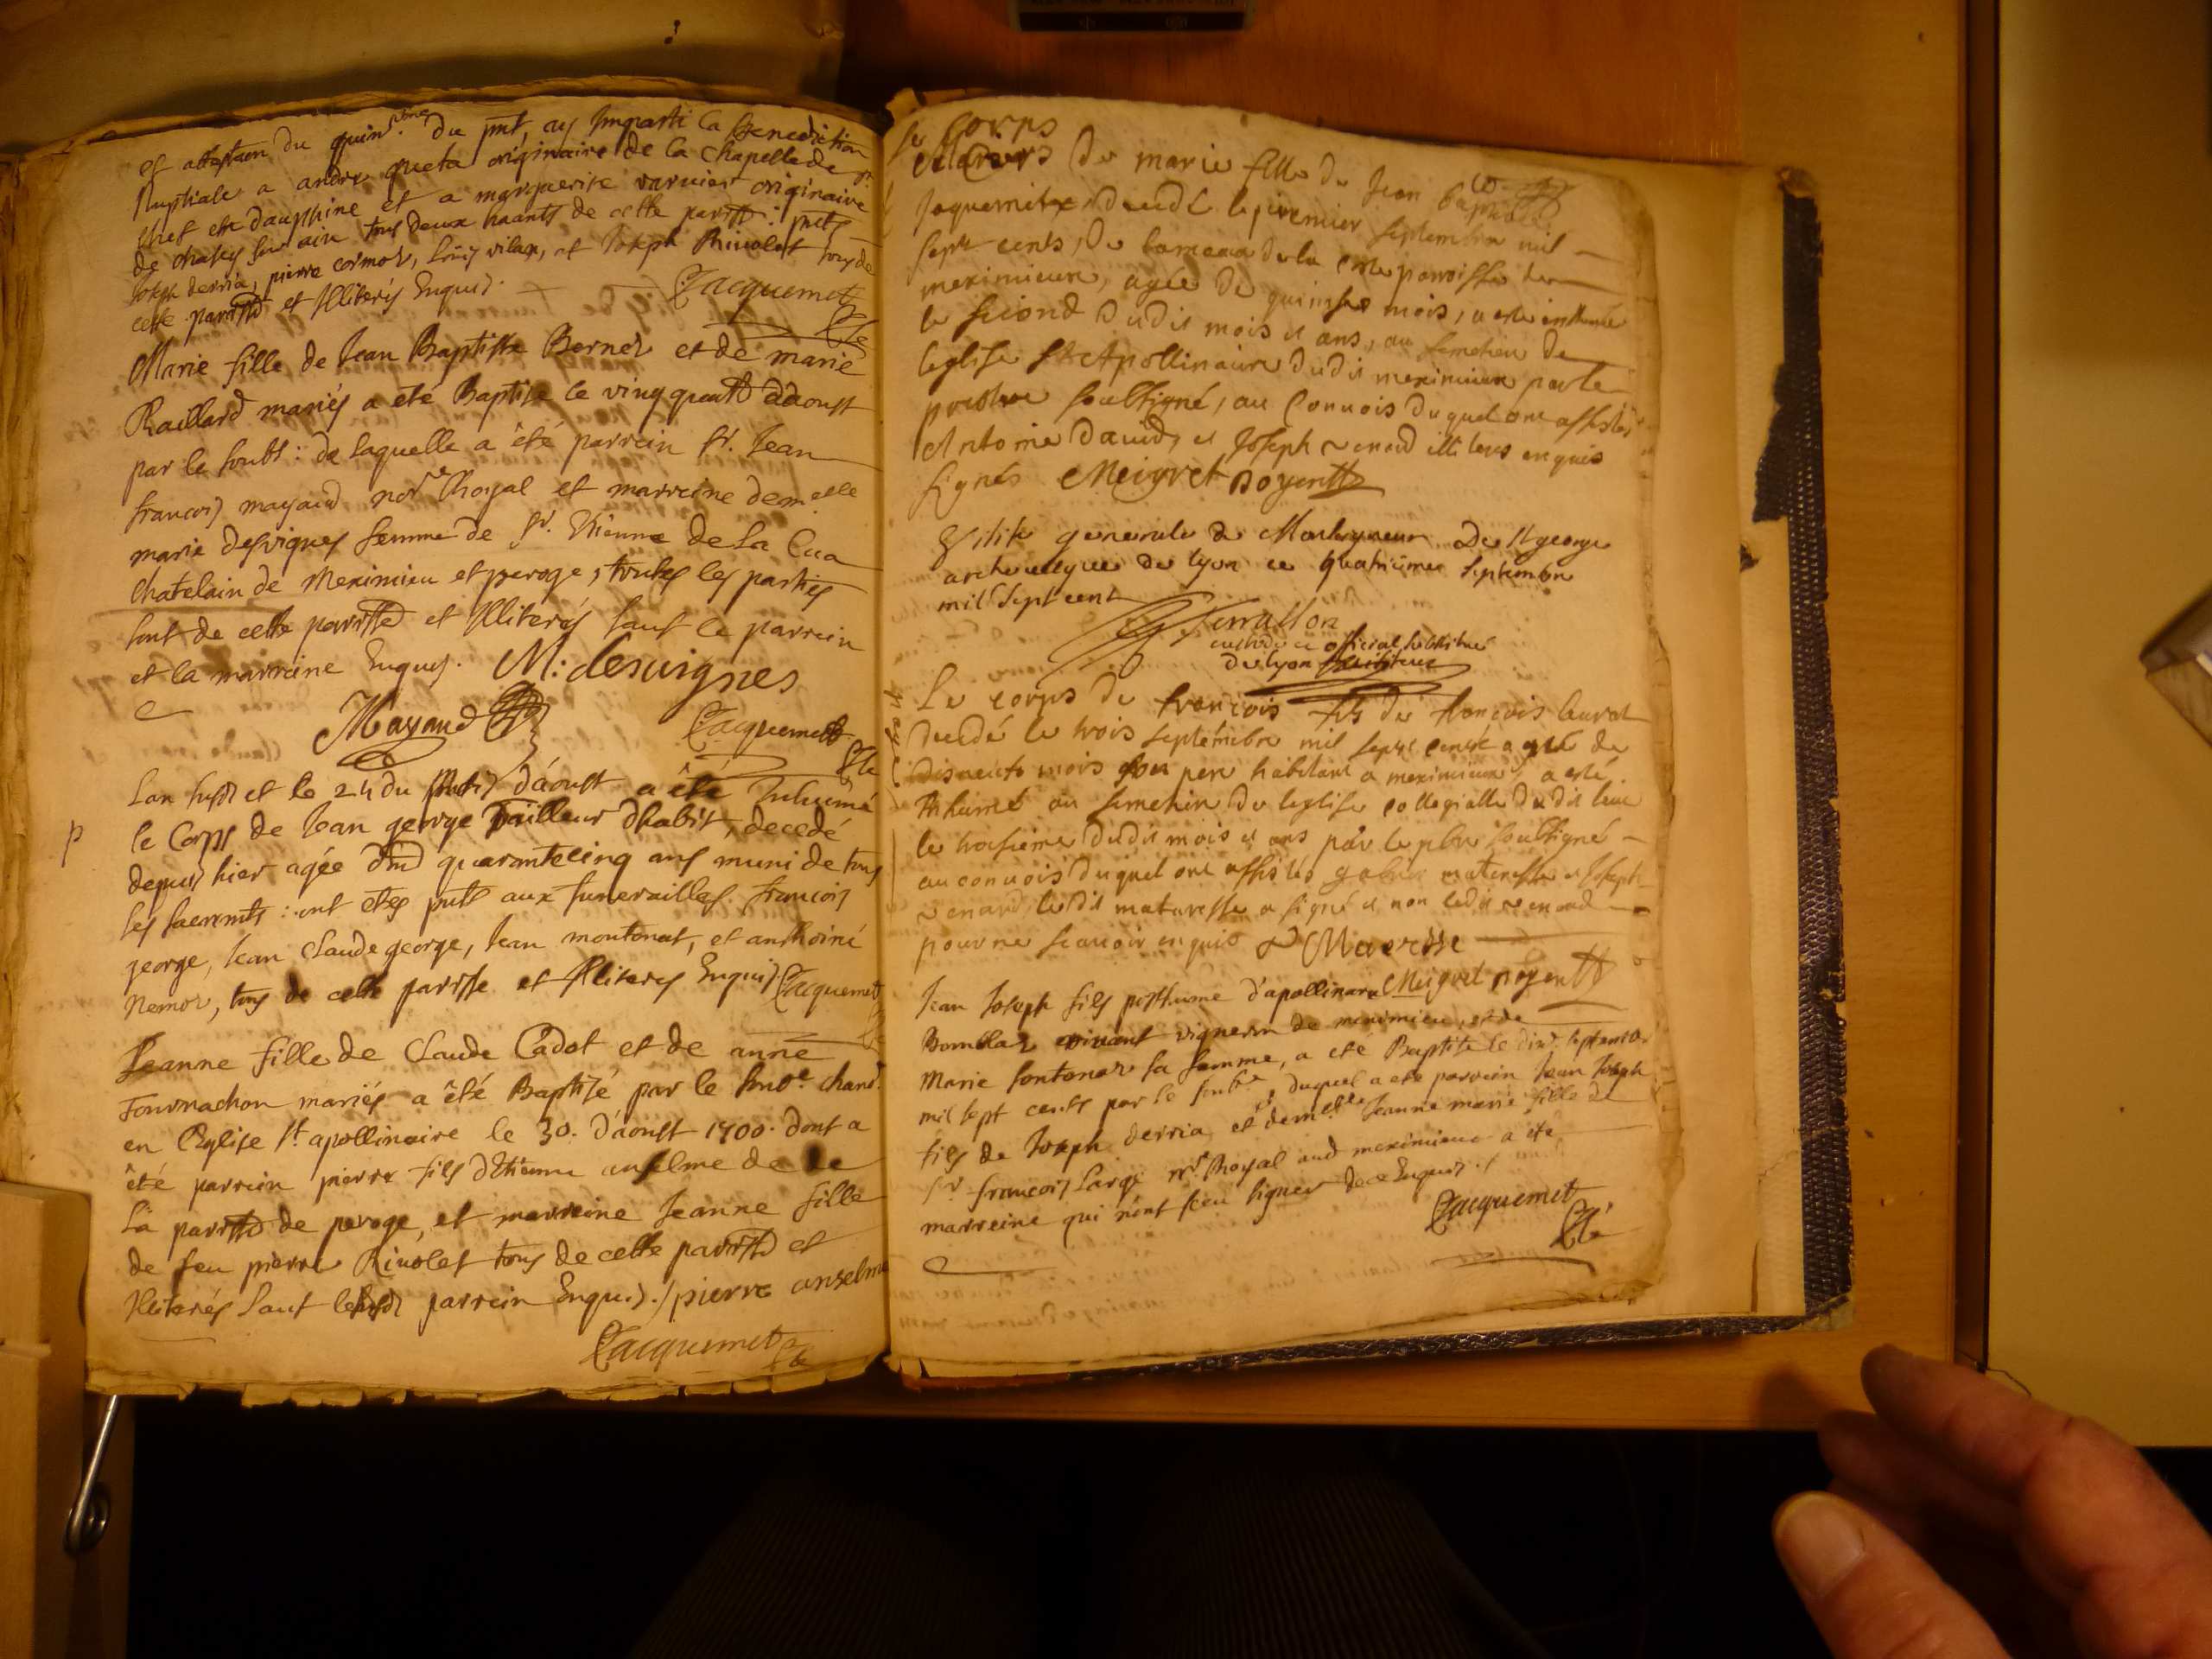 et attestaon du quin.sme du pnt, ay Imparti la Benediction
Nuptiale a andre queta originaire de la chapelle de st
chef en dauphine et a marguerite varnier originaire
de chasey sur ain tous deux haants de cette parisse: pnts
Joseph derria, pierre cormor, Louis vilax, et Joseph Rivolet tous de
cette parisse et Illiterés Enquis.
Jacquemet
Marie fille de Jean Baptiste Bernet et de marie
Raillard mariés a eté Baptise le vingquatre d'aoust
par le soubs: de laquelle a été parrein sr. Jean
francois mayaud nore Royal et marreine demelle
marie desvignes femme de sr. Etienne de la Cua
chatelain de Meximieu et peroge, toutes les parties
sont de cette parisse et Illiterés sauf le parrein
et la marreine Enquis. M: desvignes
Mayaud Jacquemet
Lan susd et le 24 du mois d'áoust a été Inhumé
p le Corps de Jean george Tailleur dhabit, decedé
depuis hier agée d'un quarantecinq ans muni de tous
les sacremts: ont etés pnts aux funerailles francois
george, Jean Claude george, Jean moutonat, et anthoine
Nemor, tous de cette parisse et Illiteres Enquis Jacquemet
Jeanne fille de Claude Cadot et de anne
Tournachon mariés a été Baptisé par le soube. chane.
en l'Eglise st. apollinaire le 30. d'áoust 1700. dont a
été parrein pierre fils d'Etienne anselme de
la parisse de peroge, et marreine Jeanne fille
de feu pierre Rivolet tous de cette parisse et
Iliterés sauf le susd parrein Enquis./ pierre anselme
Jacquemet
Le Corps
de marie fille de Jean baptiste
Jaquemite decedé le premier septembre mil
sept cents, du hameau de la coste parroisse de
meximieux, agée de quinse mois, a esté inhumée
le second dudit mois et ans, au semetier de
leglise st Apollinaire dudit meximieux par le
prestre soubsigné, au Convois duquel ont assistés
Antoine david, et Joseph renard illiterés enquis
signés Meigret doyen
Visite generale de Monseigneur De St george
archevesque de lyon ce quatrieme septembre
mil sept cent
Terrasson
custode et official substitué
de lyon
Le corps de francois fils de francois leurat
decedé le trois septembre mil sept cents agé de
mois son pere habitant a meximieux, a esté
Inhumé au semetier de leglise collegialle dudit lieu
le troisieme dudit mois et ans par le pbre soubsigné
au convois duquel ont assistés gabriel materesse et Joseph
renard, ledit materesse a signé et non ledit renard
pour ne scavoir enquis
Jean Joseph fils posthume d'apollinare Meigret doyen
Bomblar vivant vigneron de meximieu, et de
Marie fontenar sa femme, a eté Baptisé le dixe. septembre
mil sept cents par le soube, duquel a eté parrein Jean Joseph
fils de Joseph derria, et demlle. Jeanne marie fille de
sr francois Large nre Royal aud meximieux a eté
marreine qui n'ont sceu signer de ce Enquis./
Jacquemet